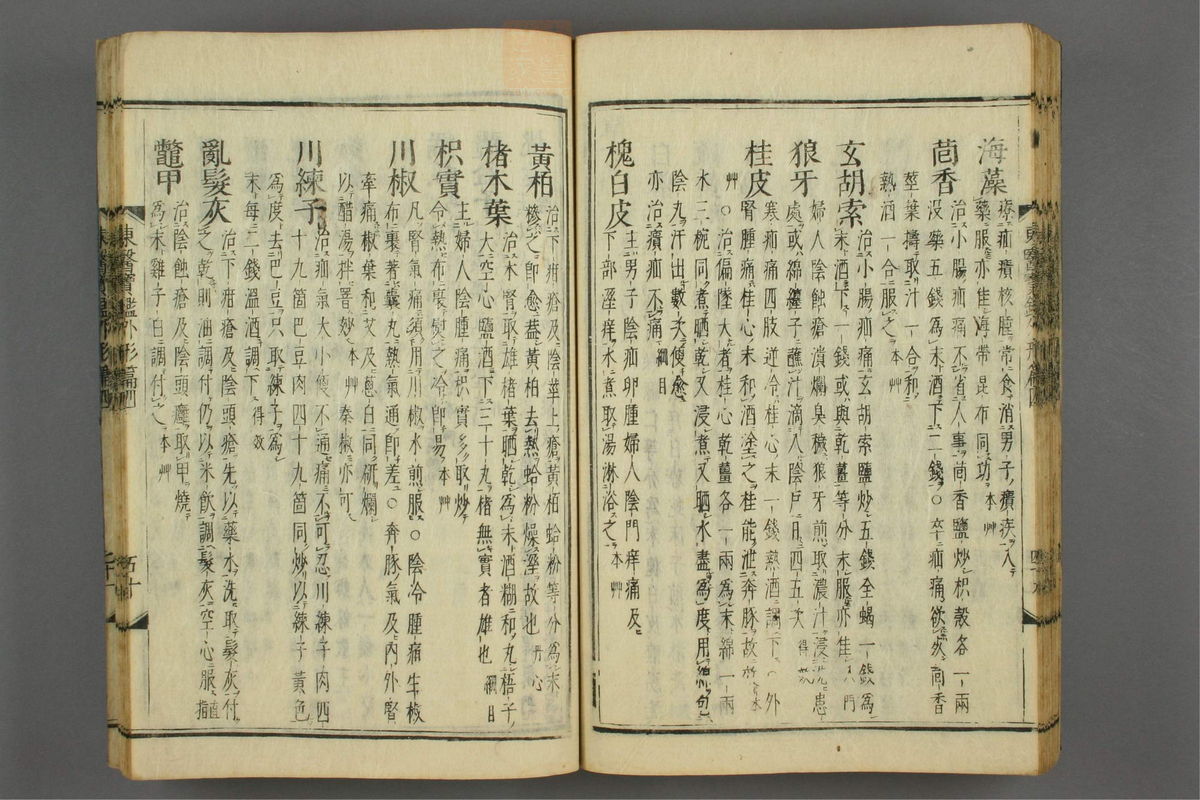 海藻 療疝㿉核腫常食消男子㿉疾入
藥服亦佳海帶昆布同功本艸
茴香 治小腸疝痛不省人事茴香鹽炒枳殼各一兩
没藥五錢爲末酒下二錢○卒疝痛欲茴香
莖葉擣取汁一合和
熱酒一合服之本艸
玄胡索 治小腸疝痛玄胡索鹽炒五錢全蝎一錢爲
末酒下一錢或與乾薑等分末服亦佳 門
狼牙 婦人陰蝕瘡潰爛臭穢狼牙煎取濃汁浸洗患
處或綿纏子蘸汁滴入陰戶日四五次得效
桂皮 寒疝痛四肢逆冷桂心末一錢熱酒調下○外
腎腫痛桂心末和酒塗之桂能泄奔豚故也本
艸○治偏墜大者桂心乾薑各一兩爲末綿一兩
水三椀同煮晒乾又浸煮又晒水盡爲度用
陰丸汗出數次便愈
亦治㿉疝不痛綱目
槐白皮 主男子陰疝卵腫婦人陰門痒痛及
下部濕痒水煮取湯淋浴之本艸
黃柏 治下疳瘡及陰莖上瘡黃柏蛤粉等分爲末
糝之即愈蓋黃柏去熱蛤粉燥溼故也丹心
楮木葉 治木腎取雄楮葉晒乾爲末酒糊和丸梧子
大空心鹽酒下三十丸楮無實者雄也綱目
枳實 主婦人陰腫痛枳實多取炒
令熱布裹熨之冷即易本艸
川椒 凡腎氣痛須用川椒水煎服○陰冷腫痛生椒
布裹著囊丸熱氣通即差○奔豚氣及內外腎
牽痛椒葉和艾及葱白同研爛
以醋湯拌罯妙本艸秦椒亦可
川練子 治疝氣大小便不通痛不可忍川練子肉四
十九箇巴豆肉四十九箇同炒以練子黃色
爲度去巴豆只取練子爲
末每二錢溫酒調下得效
亂髮灰 治下疳瘡及陰頭瘡先以藥水洗取髮灰付
之乾則油調付仍以米飲調髮灰空心服直指
鼈甲 治陰蝕瘡及陰頭癰取甲燒
爲末雞子白調付之本艸
東醫寶鑑外形篇四